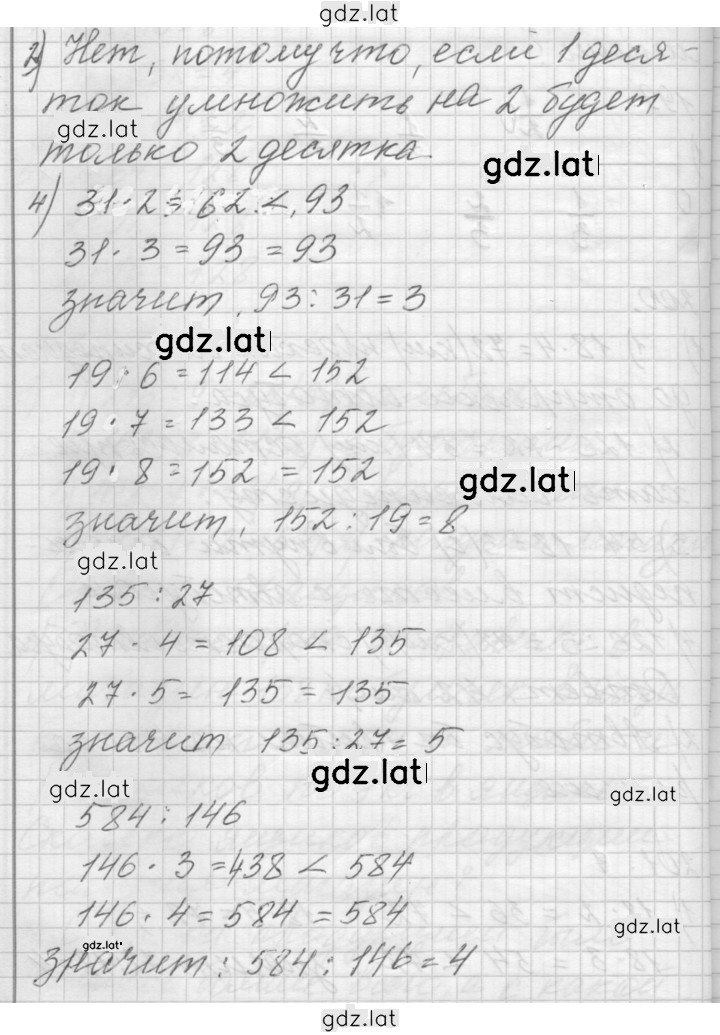 gdz.lat
2) Нет, потому что, если 1 деся-
ток умножить на 2 будет
gdz.lat
только 2 десятка.
gdz.lat
4) 31 · 2 = 62 < 93
31 · 3 = 93 = 93
значит, 93 : 31 = 3
gdz.lat
19 · 6 = 114 < 152
19 · 7 = 133 < 152
19 · 8 = 152 = 152
gdz.lat
значит, 152 : 19 = 8
gdz.lat
135 : 27
27 · 4 = 108 < 135
27 · 5 = 135 = 135
значит 135 : 27 = 5
gdz.lat
gdz.lat
gdz.lat
584 : 146
146 · 3 = 438 < 584
146 · 4 = 584 = 584
gdz.lat
gdz.lat
значит : 584 : 146 = 4
gdz.lat